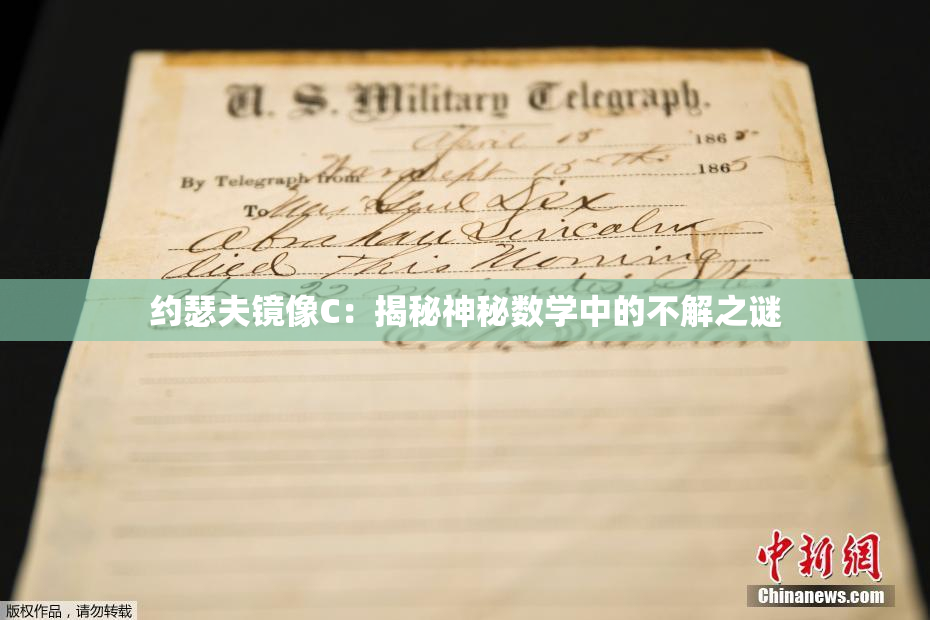 U. S. Military Telegraph.
April 15 1865
By Telegraph from War Dept 15th 1865
To Maj Genl Dix
Abraham Lincoln
died This Morning
at 22 minutes after
约瑟夫镜像C：揭秘神秘数学中的不解之谜
E. M. Stanton
中新网
Chinanews.com
版权作品，请勿转载